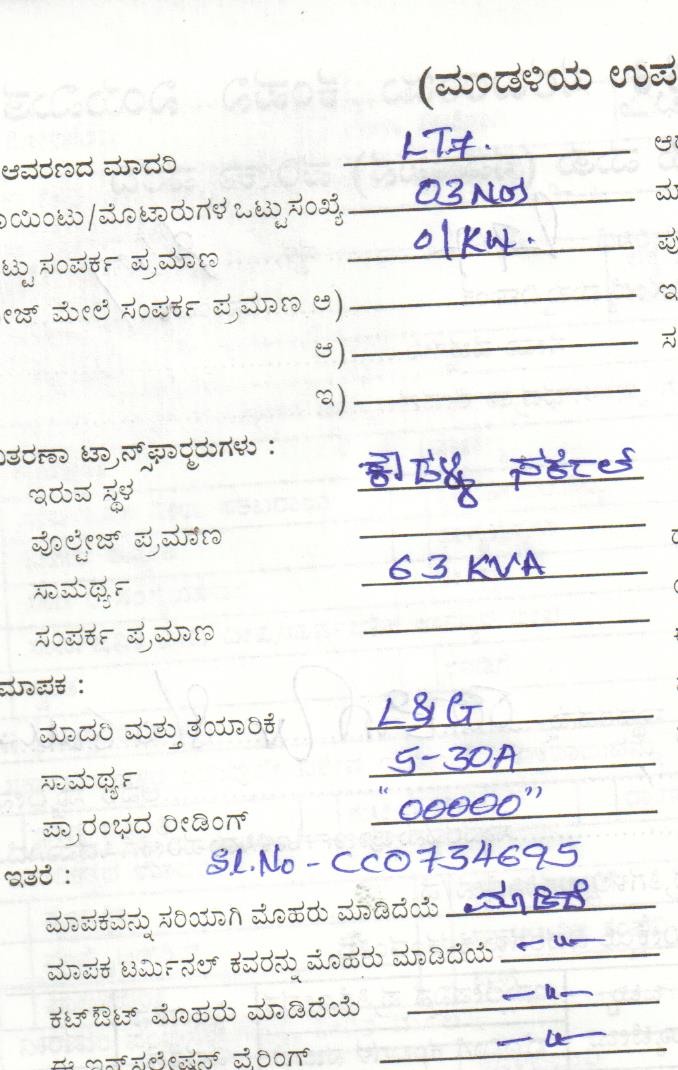 (ಮಂಡಳಿಯ ಉಪ
ಆವರಣದ ಮಾದರಿ LT7.
ಾಯಿಂಟು/ಮೊಟಾರುಗಳ ಒಟ್ಟು ಸಂಖ್ಯೆ 03 Nos
ಟ್ಟು ಸಂಪರ್ಕ ಪ್ರಮಾಣ 01KW.
ೇಜ್ ಮೇಲೆ ಸಂಪರ್ಕ ಪ್ರಮಾಣ ಅ)
ಆ)
ಇ)
ತರಣಾ ಟ್ರಾನ್ಸ್‌ಫಾರ್‍ಮರುಗಳು :
ಇರುವ ಸ್ಥಳ ಕೌದಳ್ಳಿ ಸರ್ಕಲ್
ವೊಲ್ಟೇಜ್ ಪ್ರಮಾಣ
ಸಾಮರ್ಥ್ಯ 63 KVA
ಸಂಪರ್ಕ ಪ್ರಮಾಣ
ಮಾಪಕ :
ಮಾದರಿ ಮತ್ತು ತಯಾರಿಕೆ L&G
ಸಾಮರ್ಥ್ಯ 5-30A
ಪ್ರಾರಂಭದ ರೀಡಿಂಗ್ "00000"
Sl.No - CCO734695
ಇತರೆ :
ಮಾಪಕವನ್ನು ಸರಿಯಾಗಿ ಮೊಹರು ಮಾಡಿದೆಯೆ ಮಾಡಿದೆ
ಮಾಪಕ ಟರ್ಮಿನಲ್ ಕವರನ್ನು ಮೊಹರು ಮಾಡಿದೆಯೆ —〃—
ಕಟ್‌ಔಟ್ ಮೊಹರು ಮಾಡಿದೆಯೆ —〃—
ಈ ಇನ್‌ಸಲೇಷನ್ ವೈರಿಂಗ್ —〃—